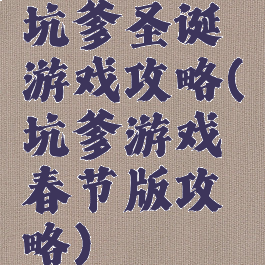 坑爹圣诞
游戏攻略(
坑爹游戏
春节版攻
略)